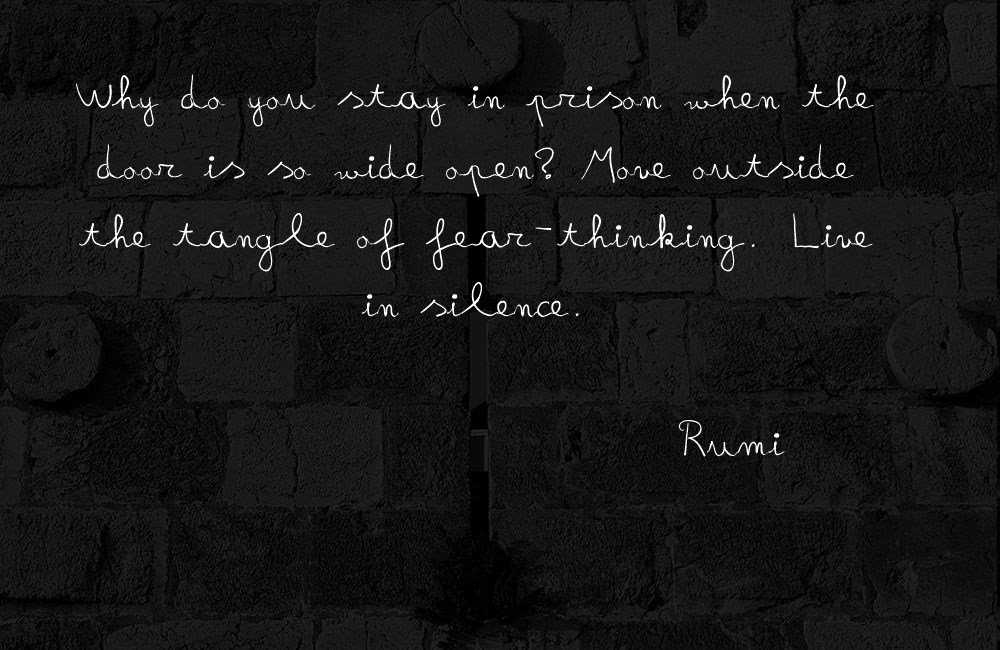 Why do you stay in prison when the
door is so wide open? Move outside
the tangle of fear-thinking. Live
in silence.
Rumi